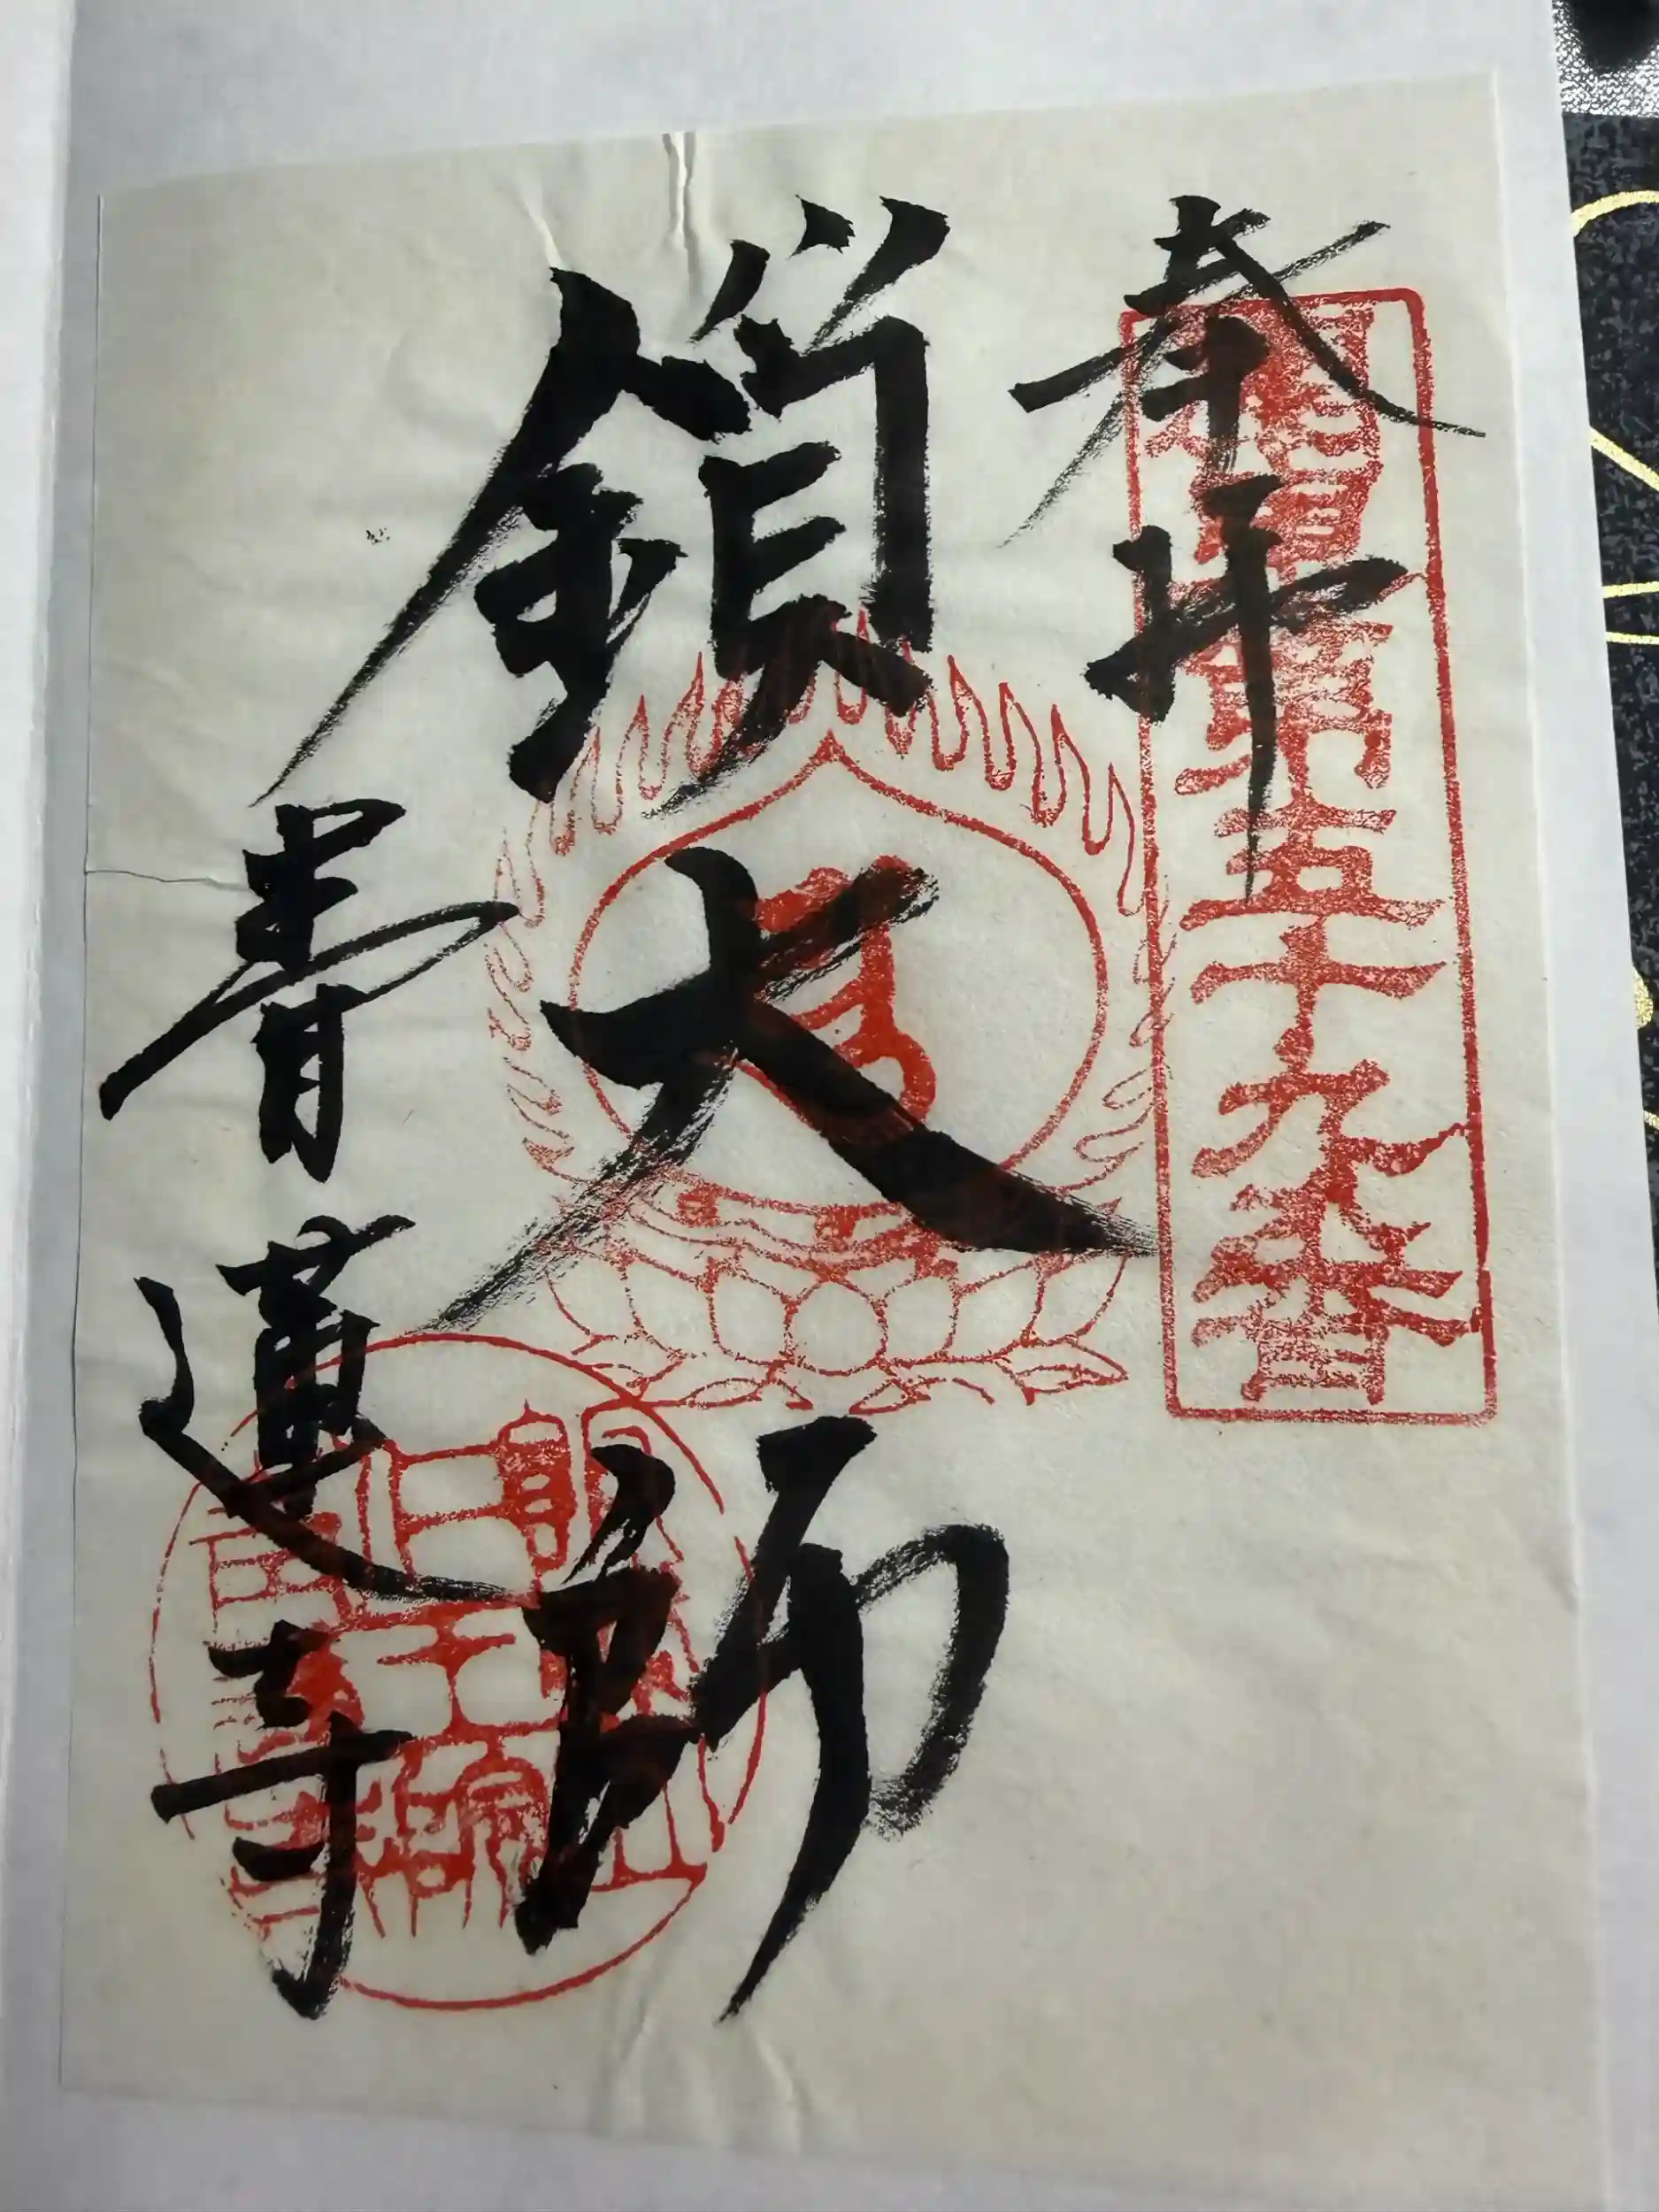 奉拝
第五十九番
鎖大師
青蓮寺